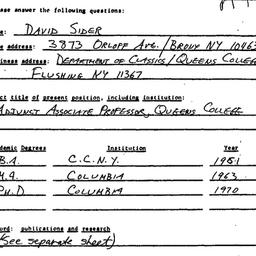 ase answer the following questions:
e: DAVID SIDER
e address: 3873 ORLOFF AVE. / BRONX NY 10463
iness address: DEPARTMENT OF CLASSICS / QUEENS COLLEGE
FLUSHING NY 11367
ct title of present position, including institution:
ADJUNCT ASSOCIATE PROFESSOR, QUEENS COLLEGE
demic Degrees Institution Year
B.A. C.C.N.Y. 1961
M.A. COLUMBIA 1963
Ph.D COLUMBIA 1970
ord: publications and research
(See separate sheet)